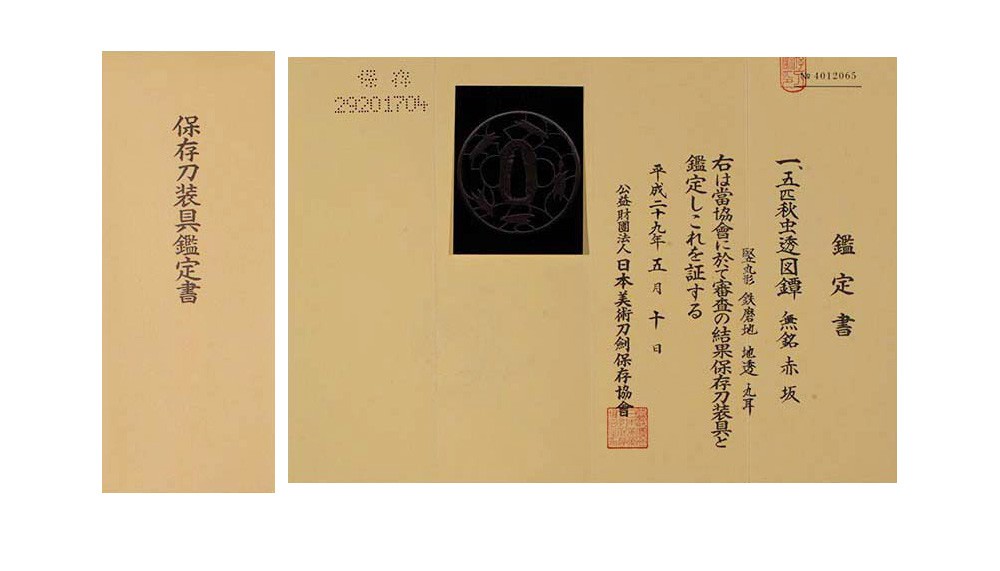 保存刀装具鑑定書
保存
29201704
№ 4012065
鑑定書
一、五匹秋虫透図鐔 無銘 赤坂
竪丸形 鉄磨地 地透 丸耳
右は當協會に於て審査の結果保存刀装具と
鑑定しこれを証する
平成二十九年五月十日
公益財團法人 日本美術刀劍保存協會